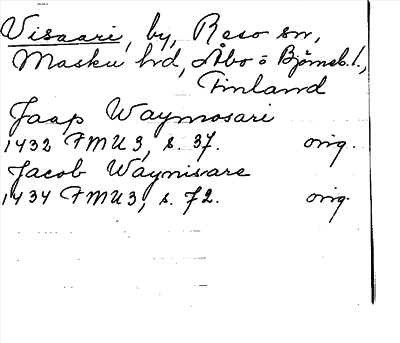 Visaari, by, Reso sn,
Masku hd, Åbo o Björneb. l.,
Finland
Jaap Waymosari
1432 FMU 3, s. 37. orig.
Jacob Waynisare
1434 FMU 3, s. 72. orig.